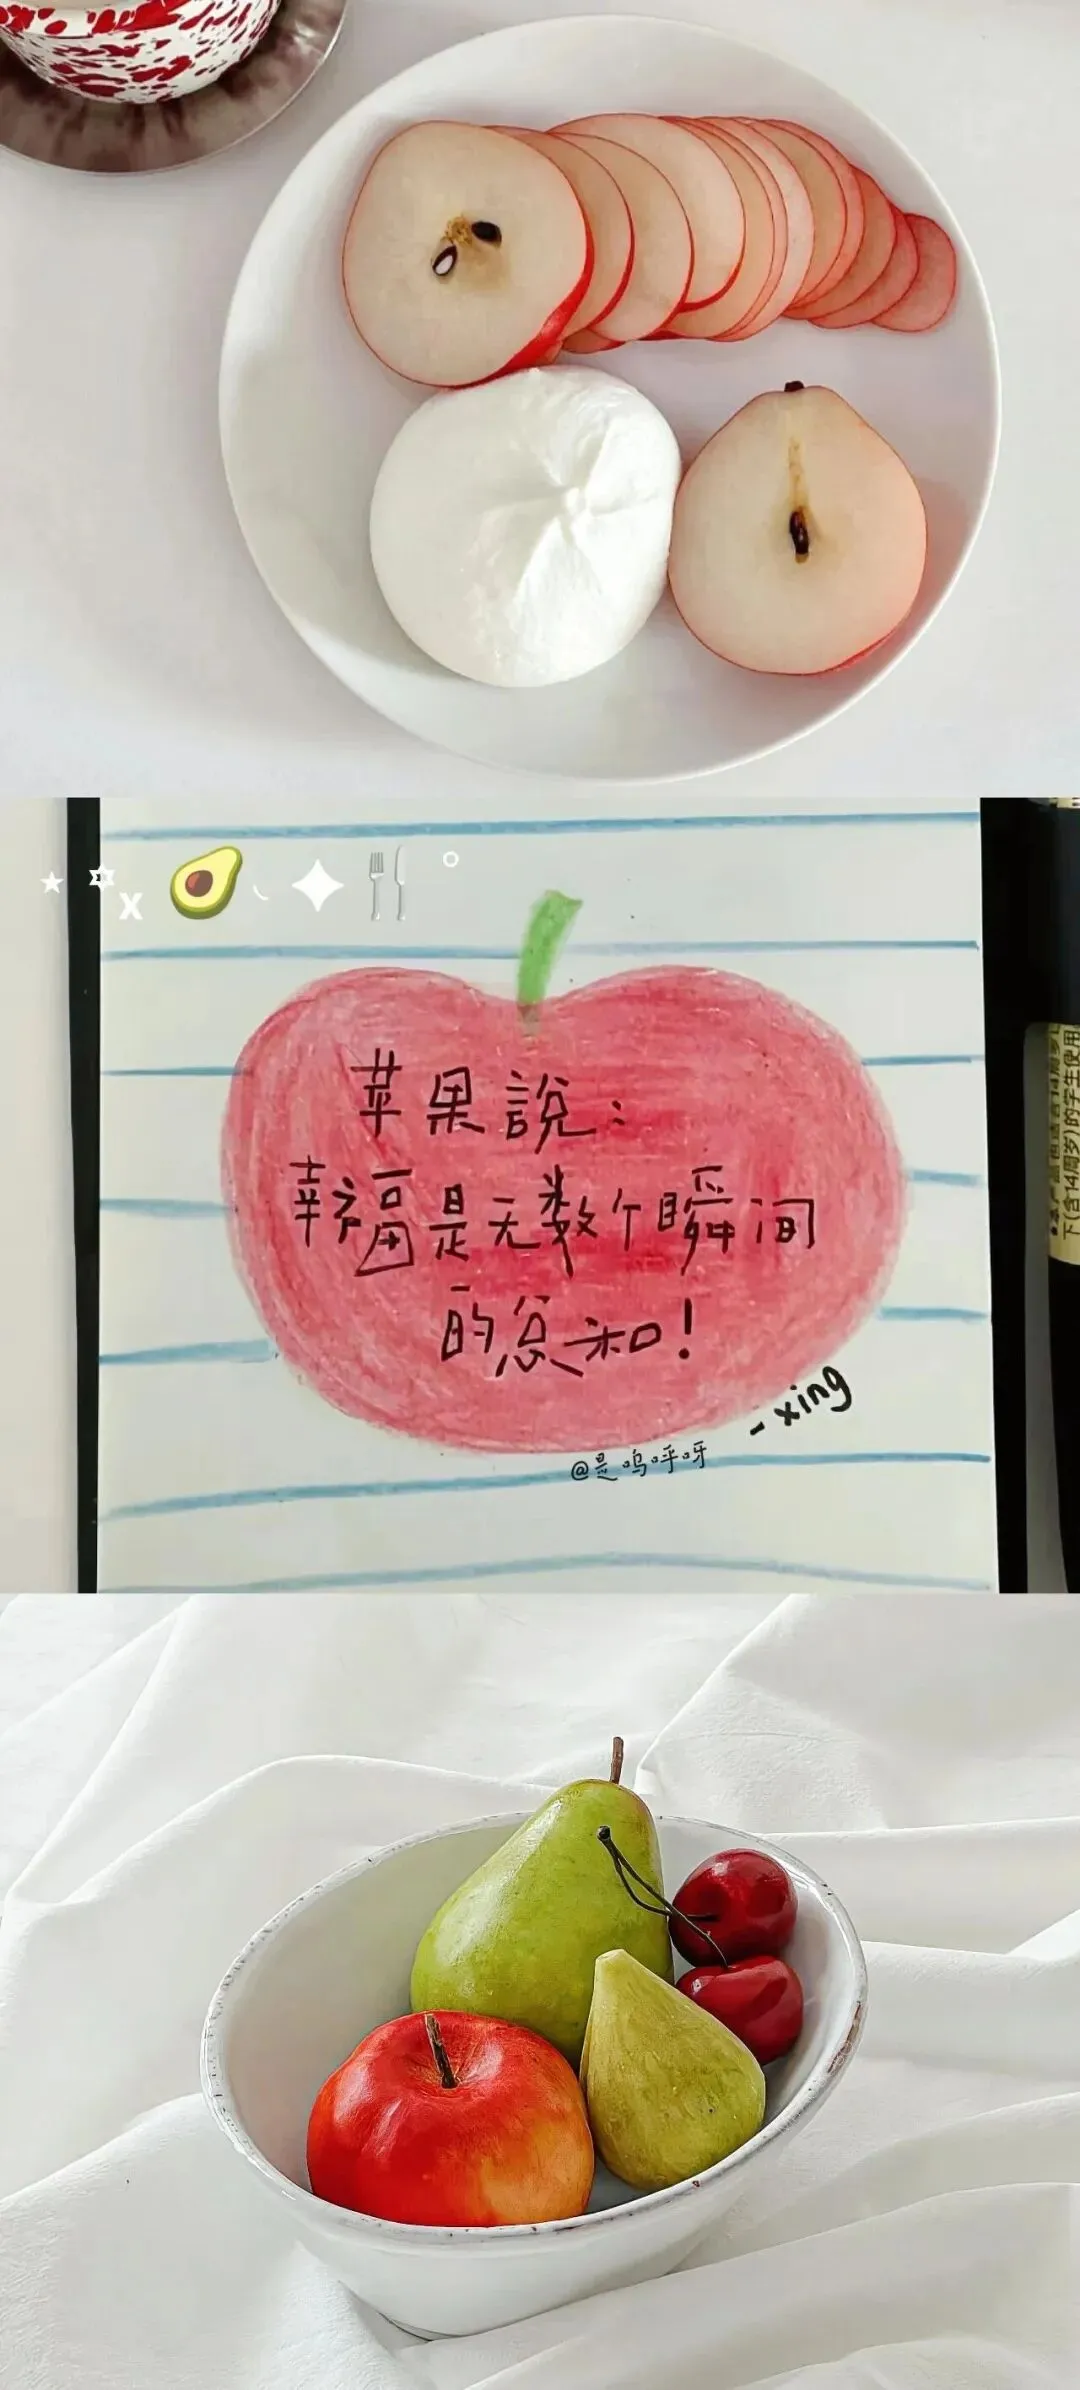 苹果説:
幸福是无数个瞬间
的总和!
- xing
@是呜呼呀
下含14周岁)的学生使用